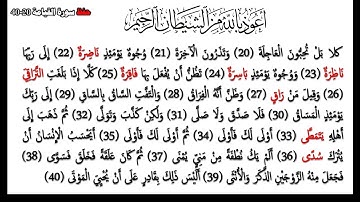 حفظ سورة القيامة 20-40
أعوذ بالله من الشيطان الرجيم
كلا بَلْ تُحِبُّونَ الْعَاجِلَةَ (20) وَتَذَرُونَ الْآخِرَةَ (21) وُجُوهٌ يَوْمَئِذٍ نَاضِرَةٌ (22) إِلَى رَبِّهَا
نَاظِرَةٌ (23) وَوُجُوهٌ يَوْمَئِذٍ بَاسِرَةٌ (24) تَظُنُّ أَنْ يُفْعَلَ بِهَا فَاقِرَةٌ (25) كَلَّا إِذَا بَلَغَتِ التَّرَاقِيَ
(26) وَقِيلَ مَنْ رَاقٍ (27) وَظَنَّ أَنَّهُ الْفِرَاقُ (28) وَالْتَفَّتِ السَّاقُ بِالسَّاقِ (29) إِلَى رَبِّكَ
يَوْمَئِذٍ الْمَسَاقُ (30) فَلَا صَدَّقَ وَلَا صَلَّى (31) وَلَكِنْ كَذَّبَ وَتَوَلَّى (32) ثُمَّ ذَهَبَ إِلَى
أَهْلِهِ يَتَمَطَّى (33) أَوْلَى لَكَ فَأَوْلَى (34) ثُمَّ أَوْلَى لَكَ فَأَوْلَى (35) أَيَحْسَبُ الْإِنْسَانُ أَنْ
يُتْرَكَ سُدًى (36) أَلَمْ يَكُ نُطْفَةً مِنْ مَنِيٍّ يُمْنَى (37) ثُمَّ كَانَ عَلَقَةً فَخَلَقَ فَسَوَّى (38)
فَجَعَلَ مِنْهُ الزَّوْجَيْنِ الذَّكَرَ وَالْأُنْثَى (39) أَلَيْسَ ذَلِكَ بِقَادِرٍ عَلَى أَنْ يُحْيِيَ الْمَوْتَى (40)